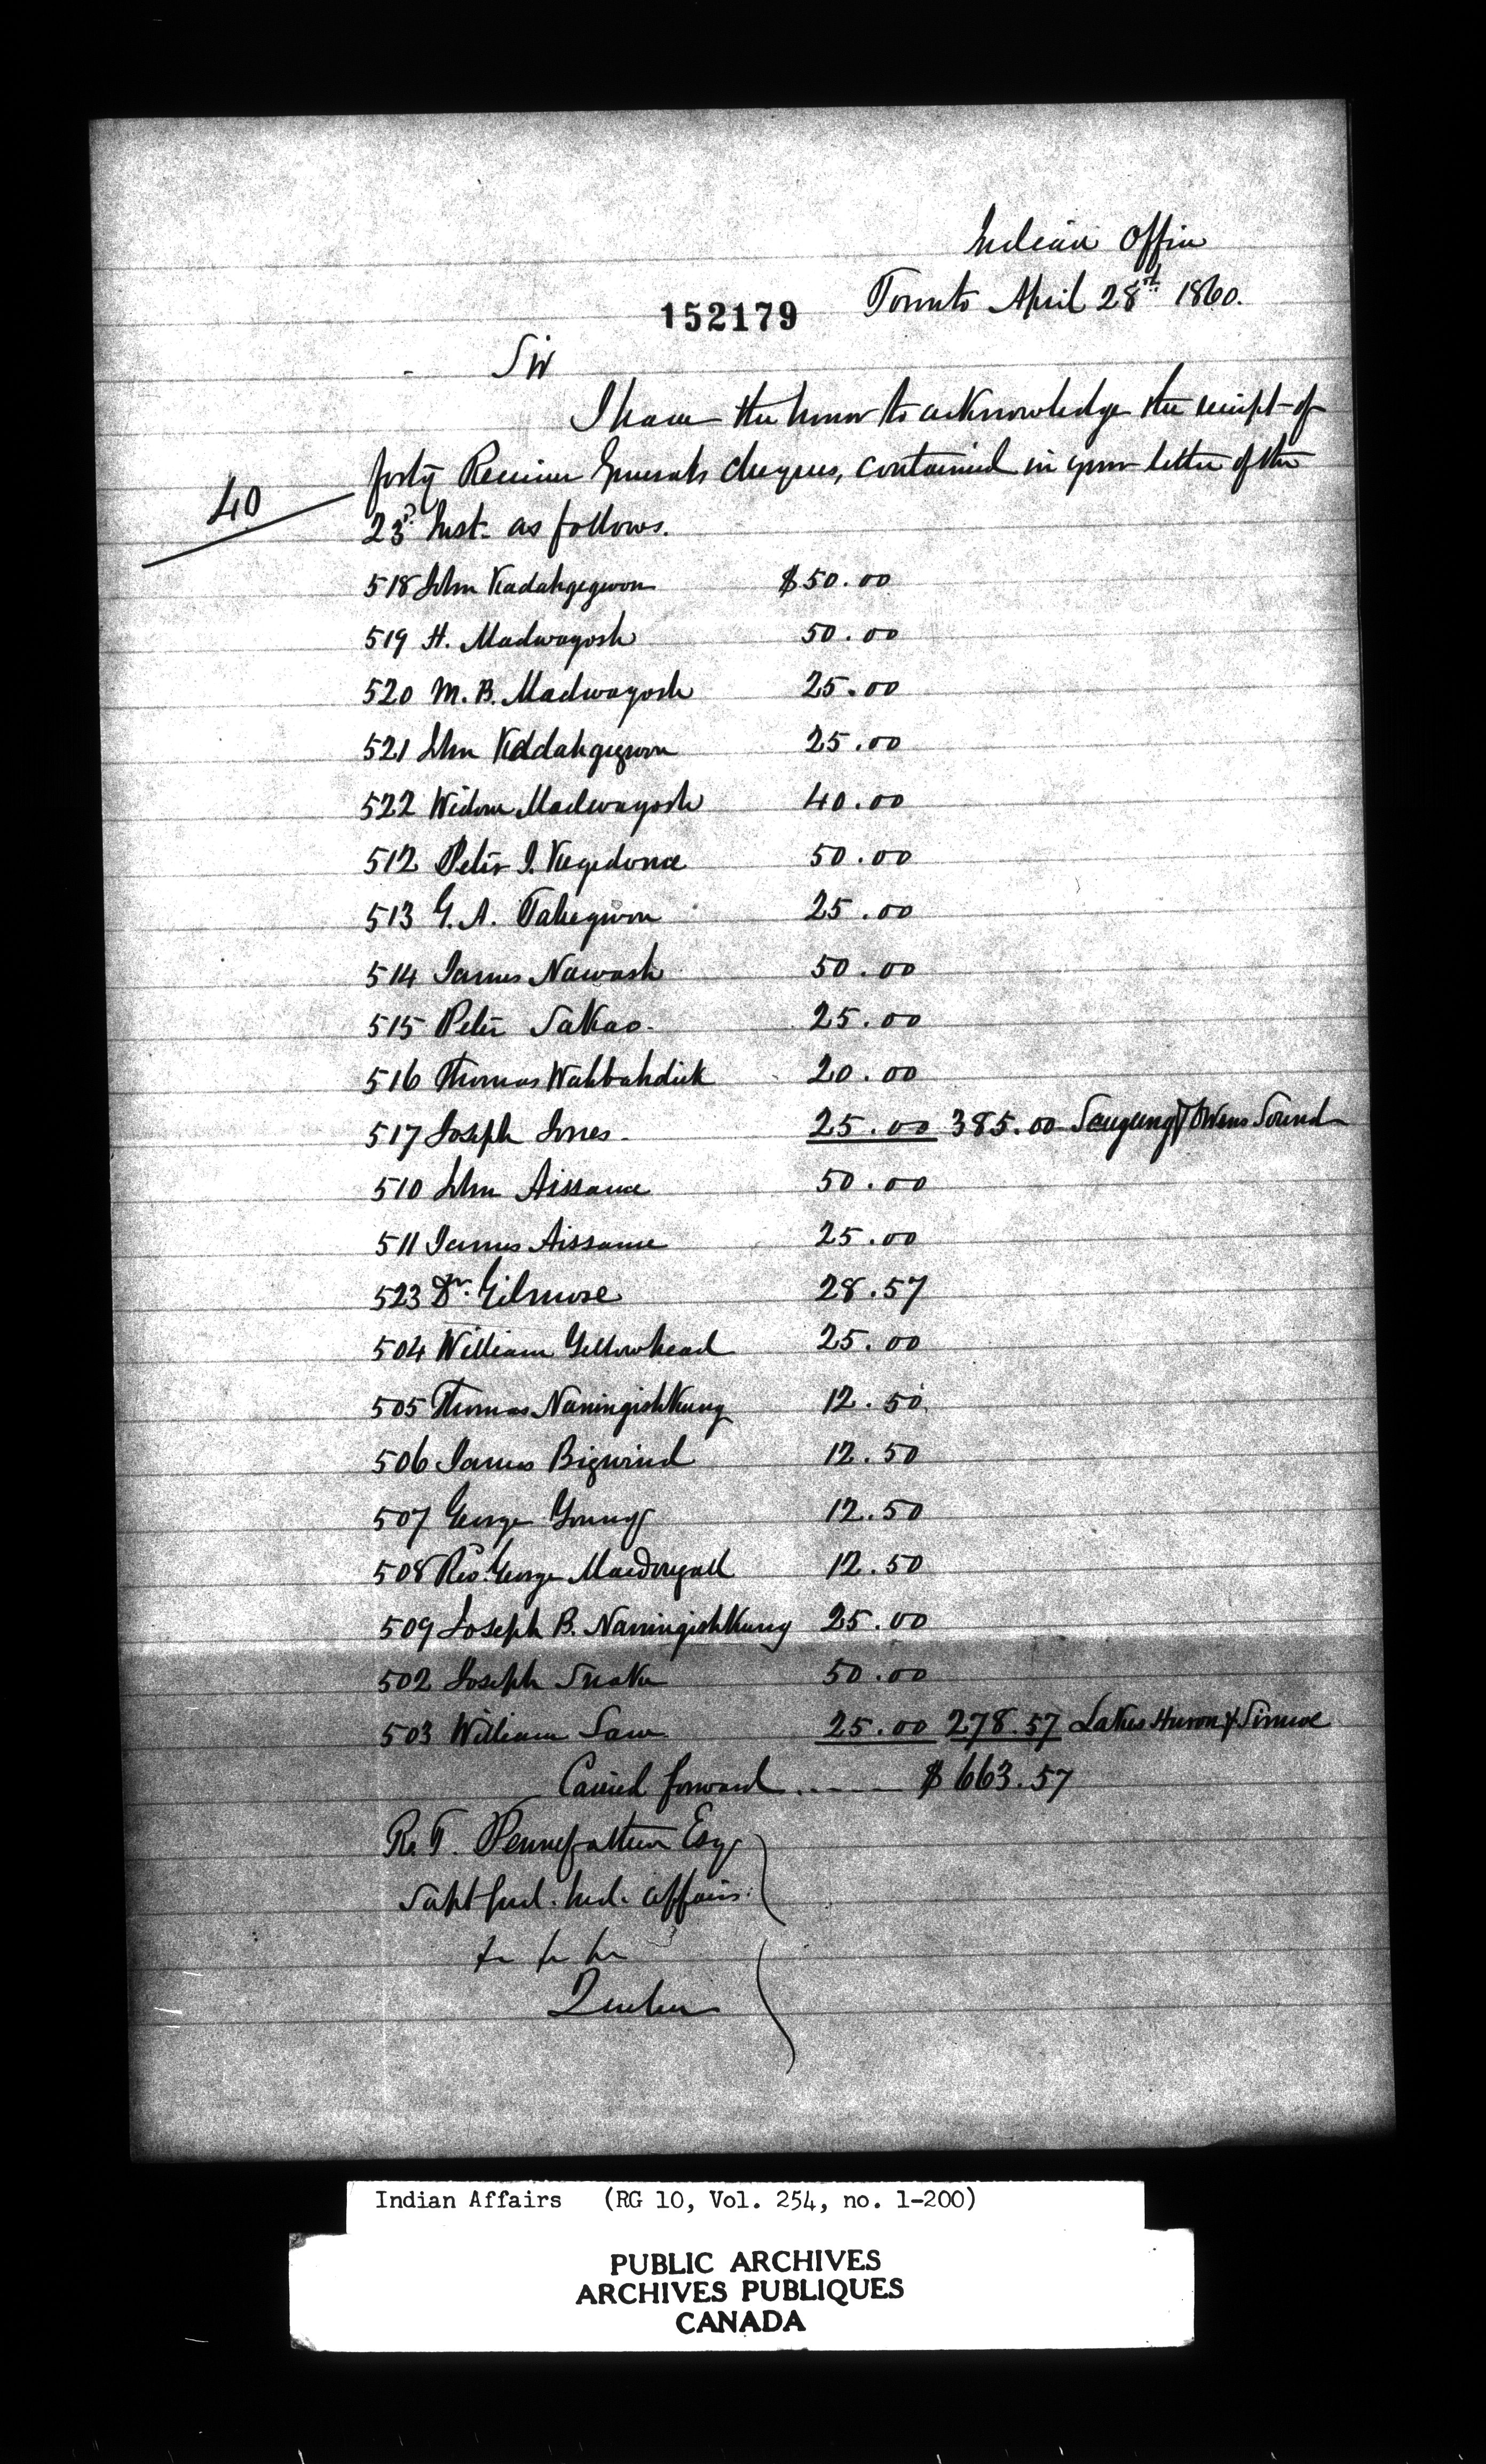 Indian Office
Toronto April 28th 1860.
152179
Sir
I have the honor to acknowledge the receipt of
forty Receiver Generals cheques, contained in your letter of the
40
23d Inst. as follows.
518 John Kadahgegwon $50.00
519 H. Madwayosh 50.00
520 M. B. Madwayosh 25.00
521 John Kadahgegwon 25.00
522 Widow Madwayosh 40.00
512 Peter J. Kegedonce 50.00
513 G. A. Tabegwon 25.00
514 James Nawash 50.00
515 Peter Sakao. 25.00
516 Thomas Wahbahdick 20.00
517 Joseph Jones. 25.00 385.00 Saugeeng & Owens Sound
510 John Aissance 50.00
511 James Aissance 25.00
523 Dr. Gilmore 28.57
504 William Yellowhead 25.00
505 Thomas Naningishkung 12.50
506 James Bigwind 12.50
507 George Young 12.50
508 Rev. George Macdougall 12.50
509 Joseph B. Naningishkung 25.00
502 Joseph Snake 50.00
503 William Law 25.00 278.57 Lakes Huron & Simcoe
Carried forward ..---- $663.57
R. T. Pennefather Esq
Supt Genl. Ind. Affairs
&c &c &c
Quebec
Indian Affairs (RG 10, Vol. 254, no. 1-200)
PUBLIC ARCHIVES
ARCHIVES PUBLIQUES
CANADA